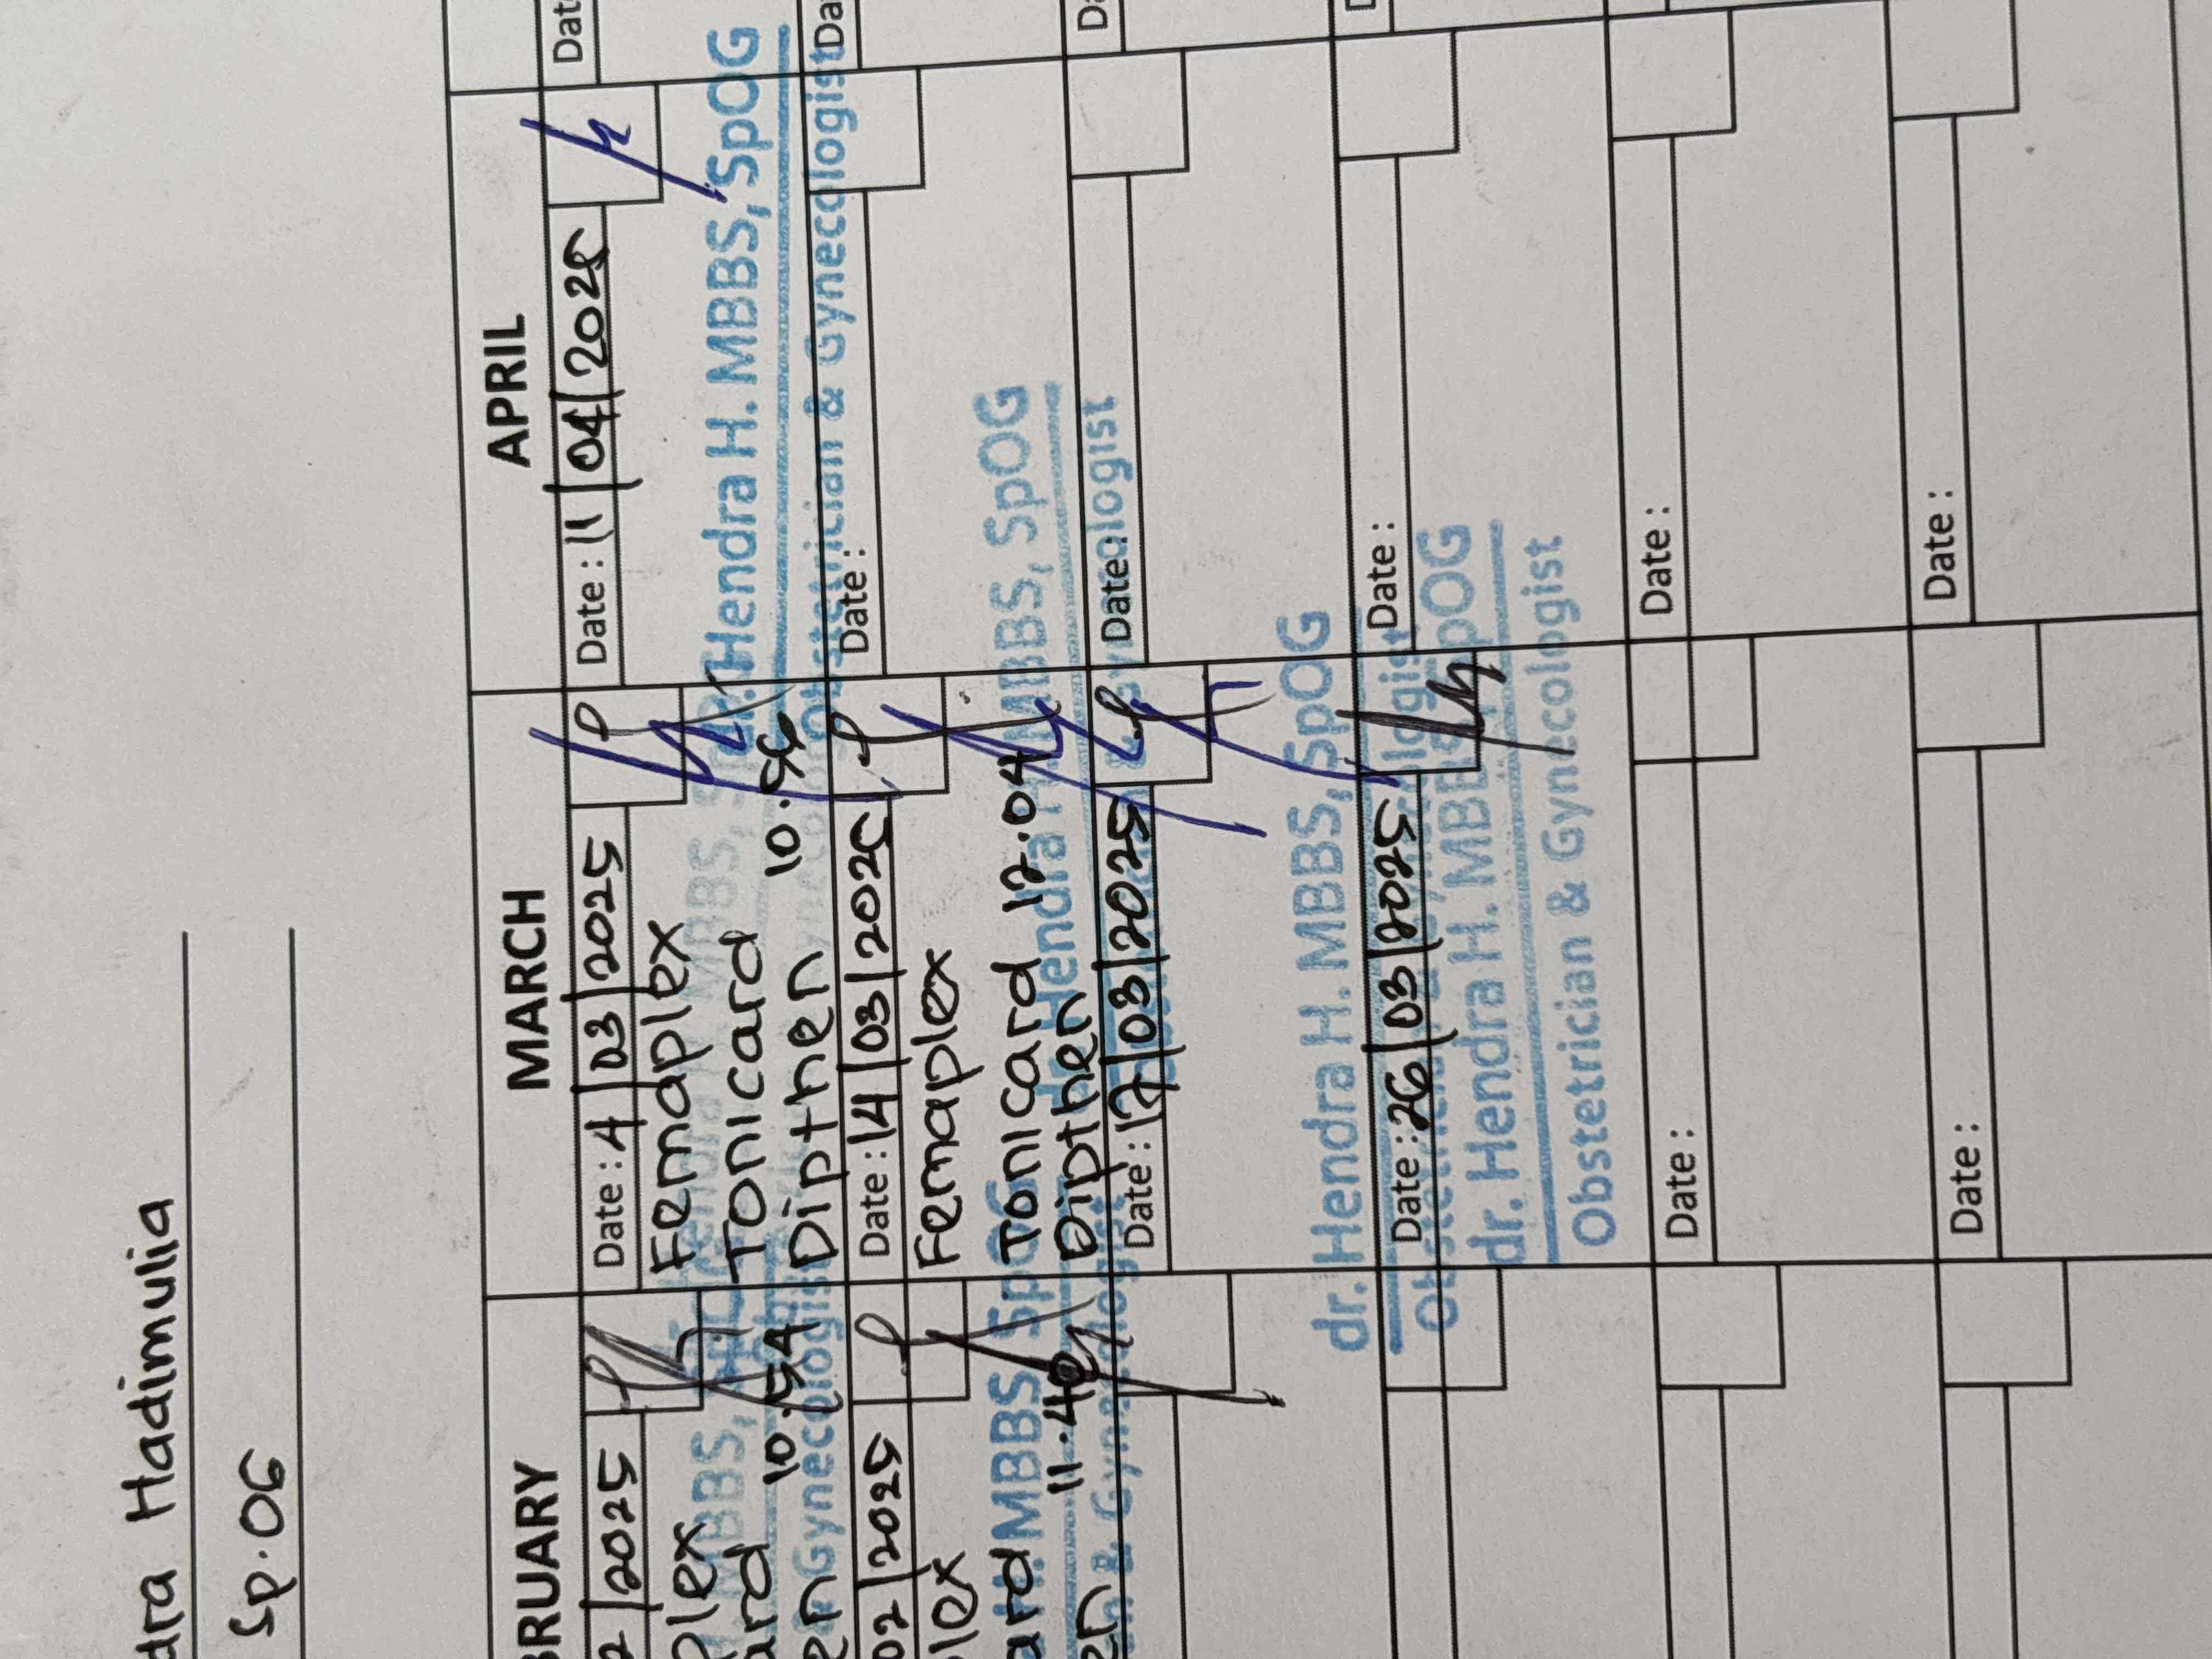 dra Hadimulia
Sp.OG
BRUARY
2 | 2025
plex
ard 10.54
en
MBBS,
Gynecologist
02 | 2025
lex
ard 11.40
en
MBBS SpOG
& Gynecologist
MARCH
Date : 4 | 03 | 2025
Femaplex
Tonicard
Dipthen 10.56
Date : 14 | 03 | 2025
Femaplex
Tonicard 12.04
Dipthen
Hendra H. MBBS, SpOG
Date : 17 | 03 | 2025
dr. Hendra H. MBBS, SpOG
Date : 26 | 03 | 2025
dr. Hendra H. MBBS, SpOG
Obstetrician & Gynecologist
Date :
Date :
APRIL
Date : 11 | 04 | 2025
Hendra H. MBBS, SpOG
Obstetrician & Gynecologist
Date :
Date :
Date :
Date :
Date :
Dat
Da
Da